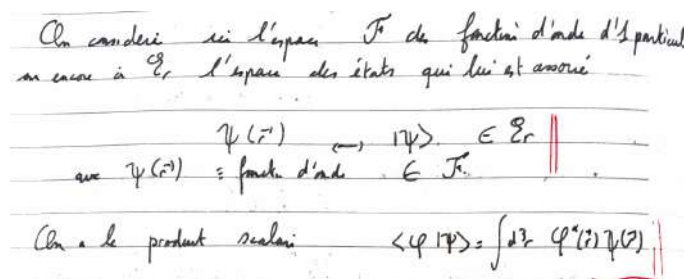 On considère ici l'espace ℱ des fonctions d'onde d'1 particul
ou encore à ℰr l'espace des états qui lui est associé
ψ(r⃗) ⟷ |ψ⟩ ∈ ℰr
avec ψ(r⃗) ≡ fonction d'onde ∈ ℱ
On a le produit scalaire ⟨φ|ψ⟩ = ∫d³r φ*(r⃗) ψ(r⃗)